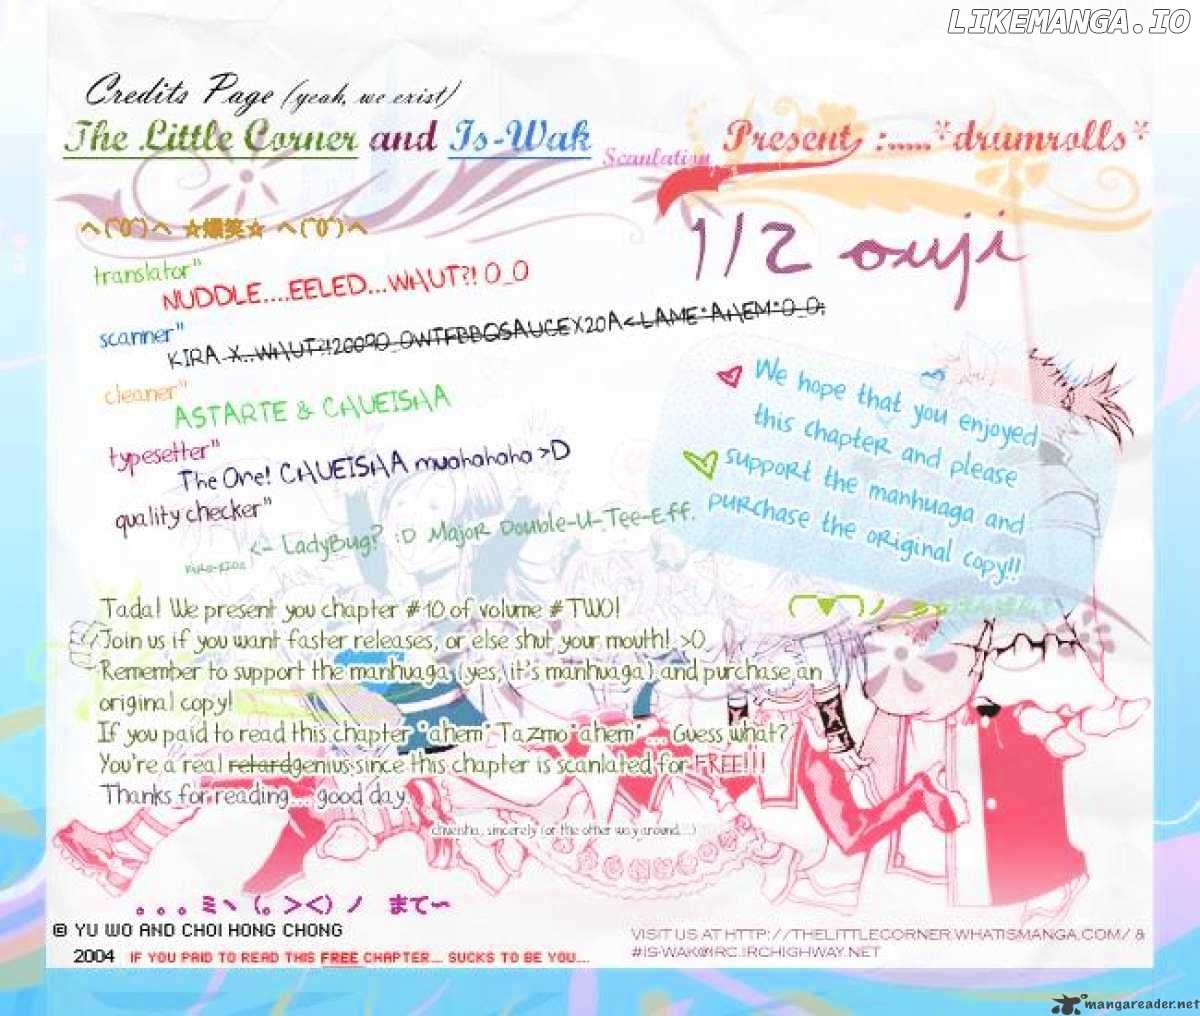 LIKEMANGA.IO
Credits Page (yeah, we exist)
The Little Corner and Is-Wak Scanlation Present :.....*drumrolls*
1/2 ouji
☆爆笑☆
translator"
NUDDLE....EELED...WHUT?! O_O
scanner"
KIRA X..WHUT?!2009O_OWTFBBQSAUCEX20A<LAME*AHEM*O_O;
cleaner"
ASTARTE & CHUEISHA
typesetter"
The One! CHUEISHA muahahaha >D
quality checker"
<- LadyBug? :D Major Double-U-Tee-Eff.
We hope that you enjoyed
this chapter and please
support the manhuaga and
purchase the original copy!!
Tada! We present you chapter #10 of volume #TWO!
Join us if you want faster releases, or else shut your mouth! >O
Remember to support the manhuaga (yes, it's manhuaga) and purchase an
original copy!
If you paid to read this chapter *ahem* Tazmo *ahem* ... Guess what?
You're a real retardgenius since this chapter is scanlated for FREE!!!
Thanks for reading... good day.
chueisha, sincerely (or the other way around...)
。。。ミヽ(。><)ノ まて〜
© YU WO AND CHOI HONG CHONG
2004 IF YOU PAID TO READ THIS FREE CHAPTER... SUCKS TO BE YOU...
VISIT US AT HTTP://THELITTLECORNER.WHATISMANGA.COM/ &
#IS-WAK@IRC.IRCHIGHWAY.NET
mangareader.net